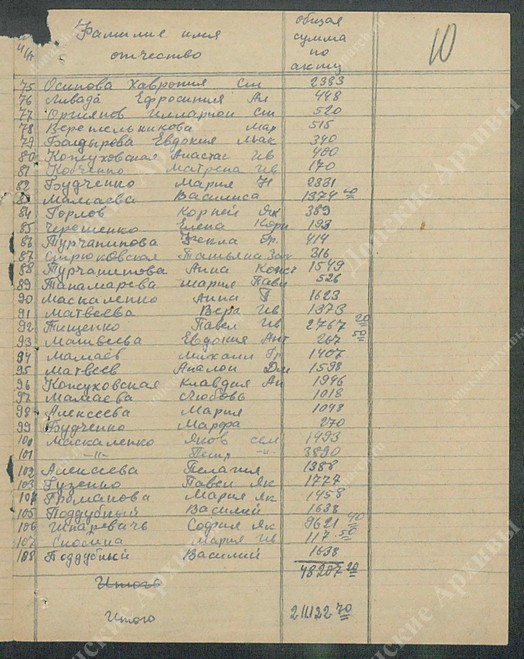 Фамилие имя
отчество
общая
сумма
по
акту
10
75 Осипова Хаврония Ст 2383
76 Ливада Ефросиния Ал 448
77 Оргиянов Илларион Ст 520
78 Веретельникова Мар 515
79 Бандырева Евдокия Мак 340
80 Кожуховская Анастас Ив 480
81 Матрена Ив 170
82 Будченко Мария Н 2331
83 Мамаева Василиса 1374 40
84 Горлов Корней Як 389
85 Черешенко Елена Корн 193
86 Турчанинова Фекла Гр. 414
87 Стрюковская Татьяна Зах 316
88 Турчанинова Анна Конст 1549
89 Танамарева Мария Павл 526
90 Маскаленко Анна 1623
91 Матвеева Вера Ив 1373
92 Тищенко Павел Ив 2767 20
93 Матвеева Евдокия Ант 267 50
94 Мамаев Михаил Гр 1407
95 Матвеев Дм 1598
96 Кожуховская Клавдия Ан 1946
97 Мамаева Любовь 1018
98 Алексеева Мария 1048
99 Будченко Марфа 270
100 Маскаленко Яков сем 1493
101 -"- Петр -"- 3890
102 Алексеева Пелагия 1388
103 Гузенко Павел Як 1774
104 Громанова Мария Як 1458
105 Поддубный Василий 1638
106 София Як 9621 40
107 Мария Ив 117 50
108 Поддубный Василий 1638
48287 20
Итого
Итого 211122 70
Донские Архивы